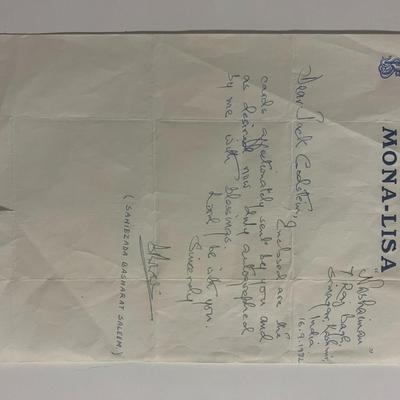 MONA-LISA
"Nashaiman"
7 Raj Bagh
Srinagar, Kashmir,
India
16.9.1982
Dear Jack Goodstein,
Enclosed are the
cards affectionately sent by you and
as desired now duly autographed
by me with blessings.
Lord be with you.
Sincerely
(SAHIBZADA BASHARAT SALEEM)